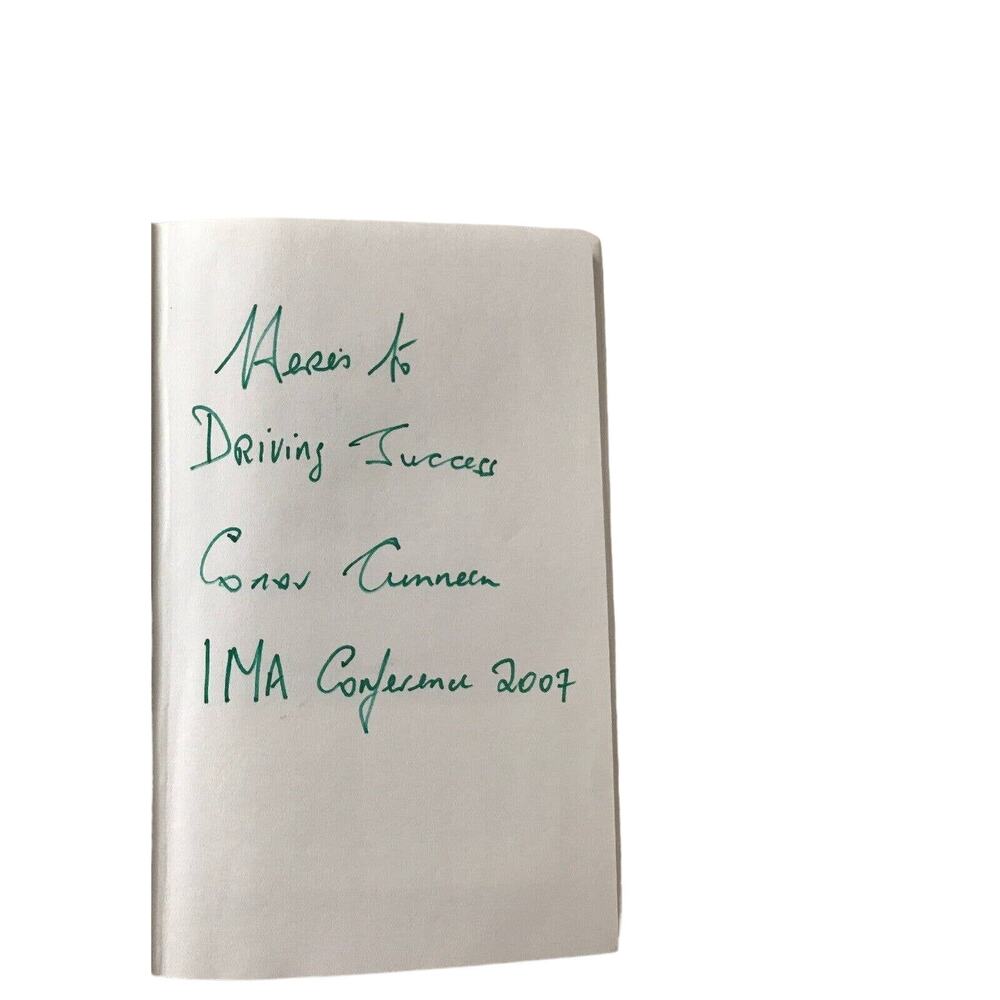 Here's to
Driving Success
Conor Cunneen
IMA Conference 2007